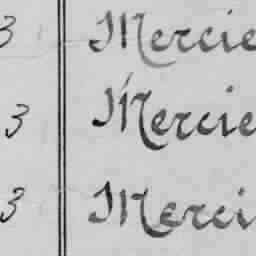 3 Mercie
3 Mercie
3 Merci